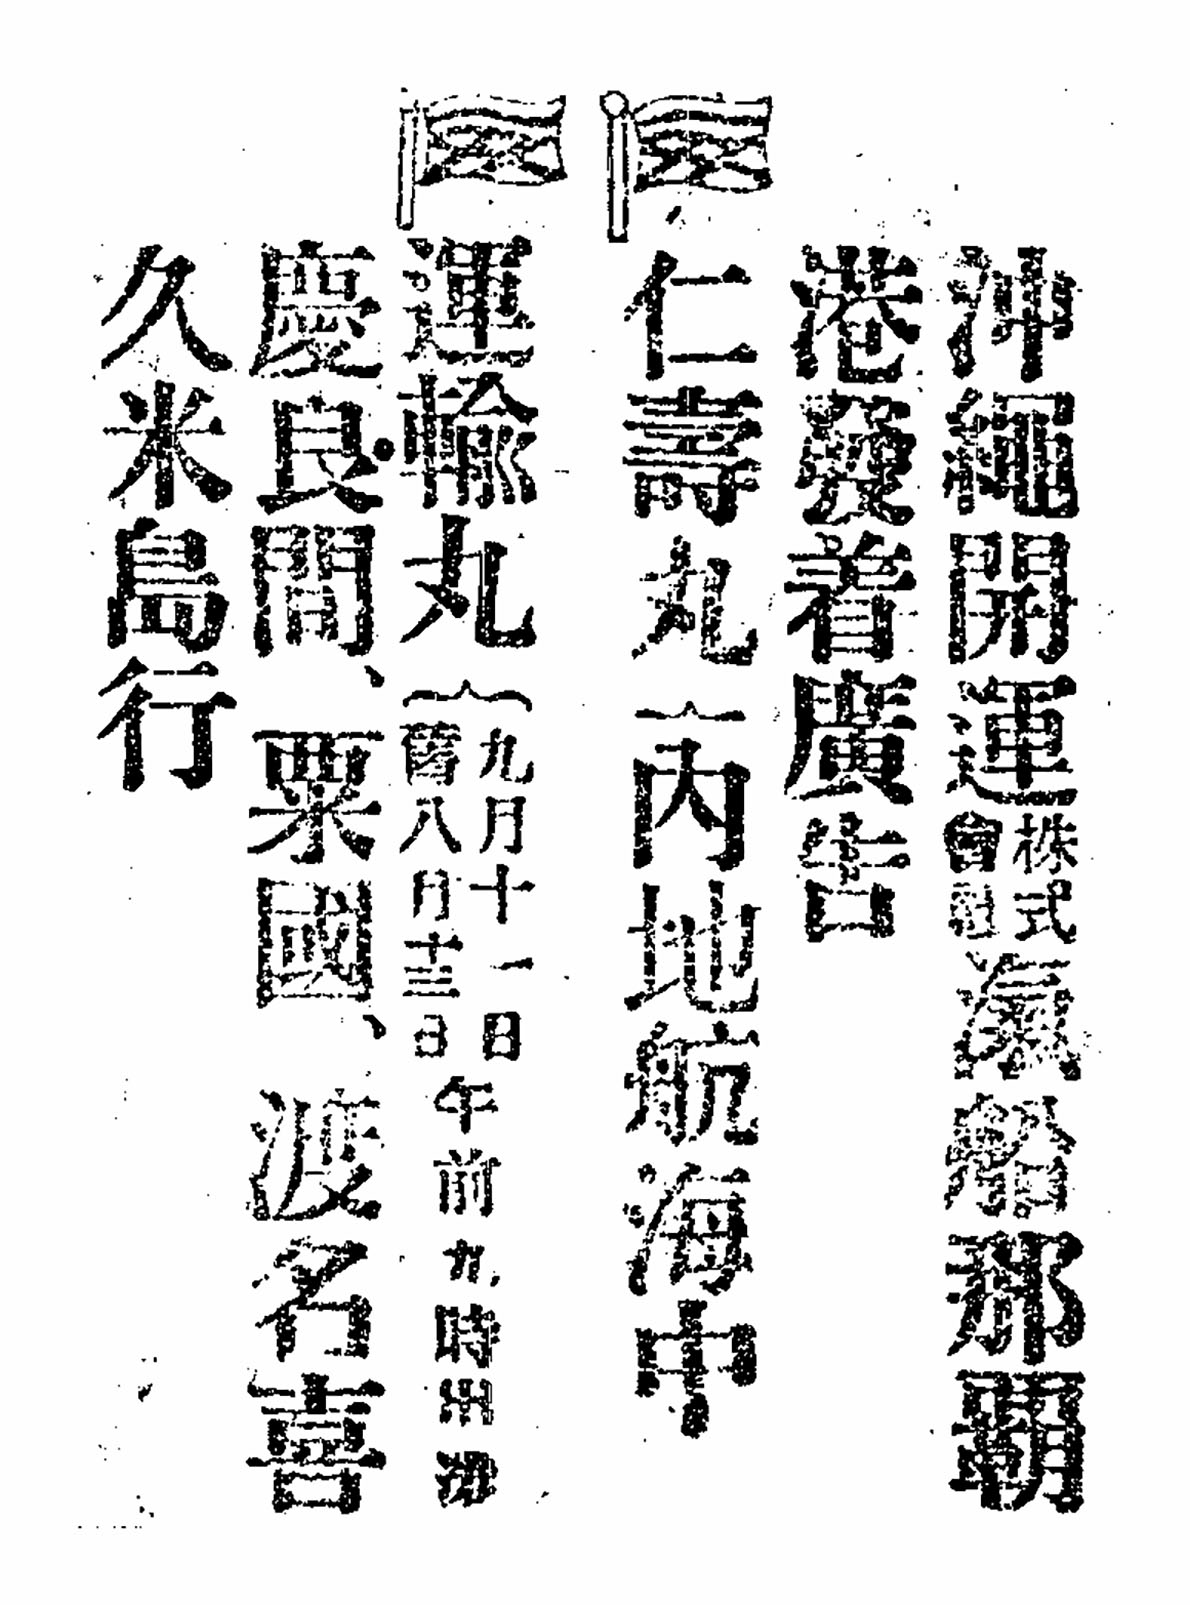 沖繩開運株式會社滊船那覇
港發着廣告
仁壽丸{内地航海中
運輸丸{九月十一日
舊八月十三日
午前九時出港
慶良間、粟國、渡名喜
久米島行